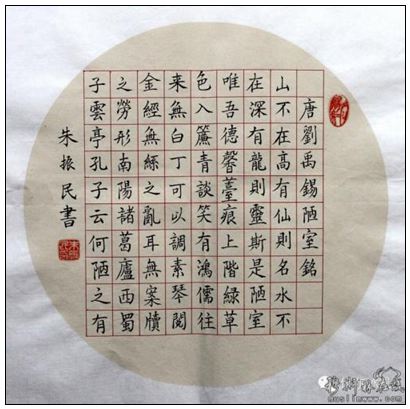 唐劉禹錫陋室銘
山不在高有仙則名水不
在深有龍則靈斯是陋室
唯吾德馨薹痕上階緑草
色入簾青談笑有鴻儒往
来無白丁可以調素琴閲
金經無絲之亂耳無案牘
之勞形南陽諸葛廬西蜀
子雲亭孔子云何陋之有
朱振民書
muslimwww.com